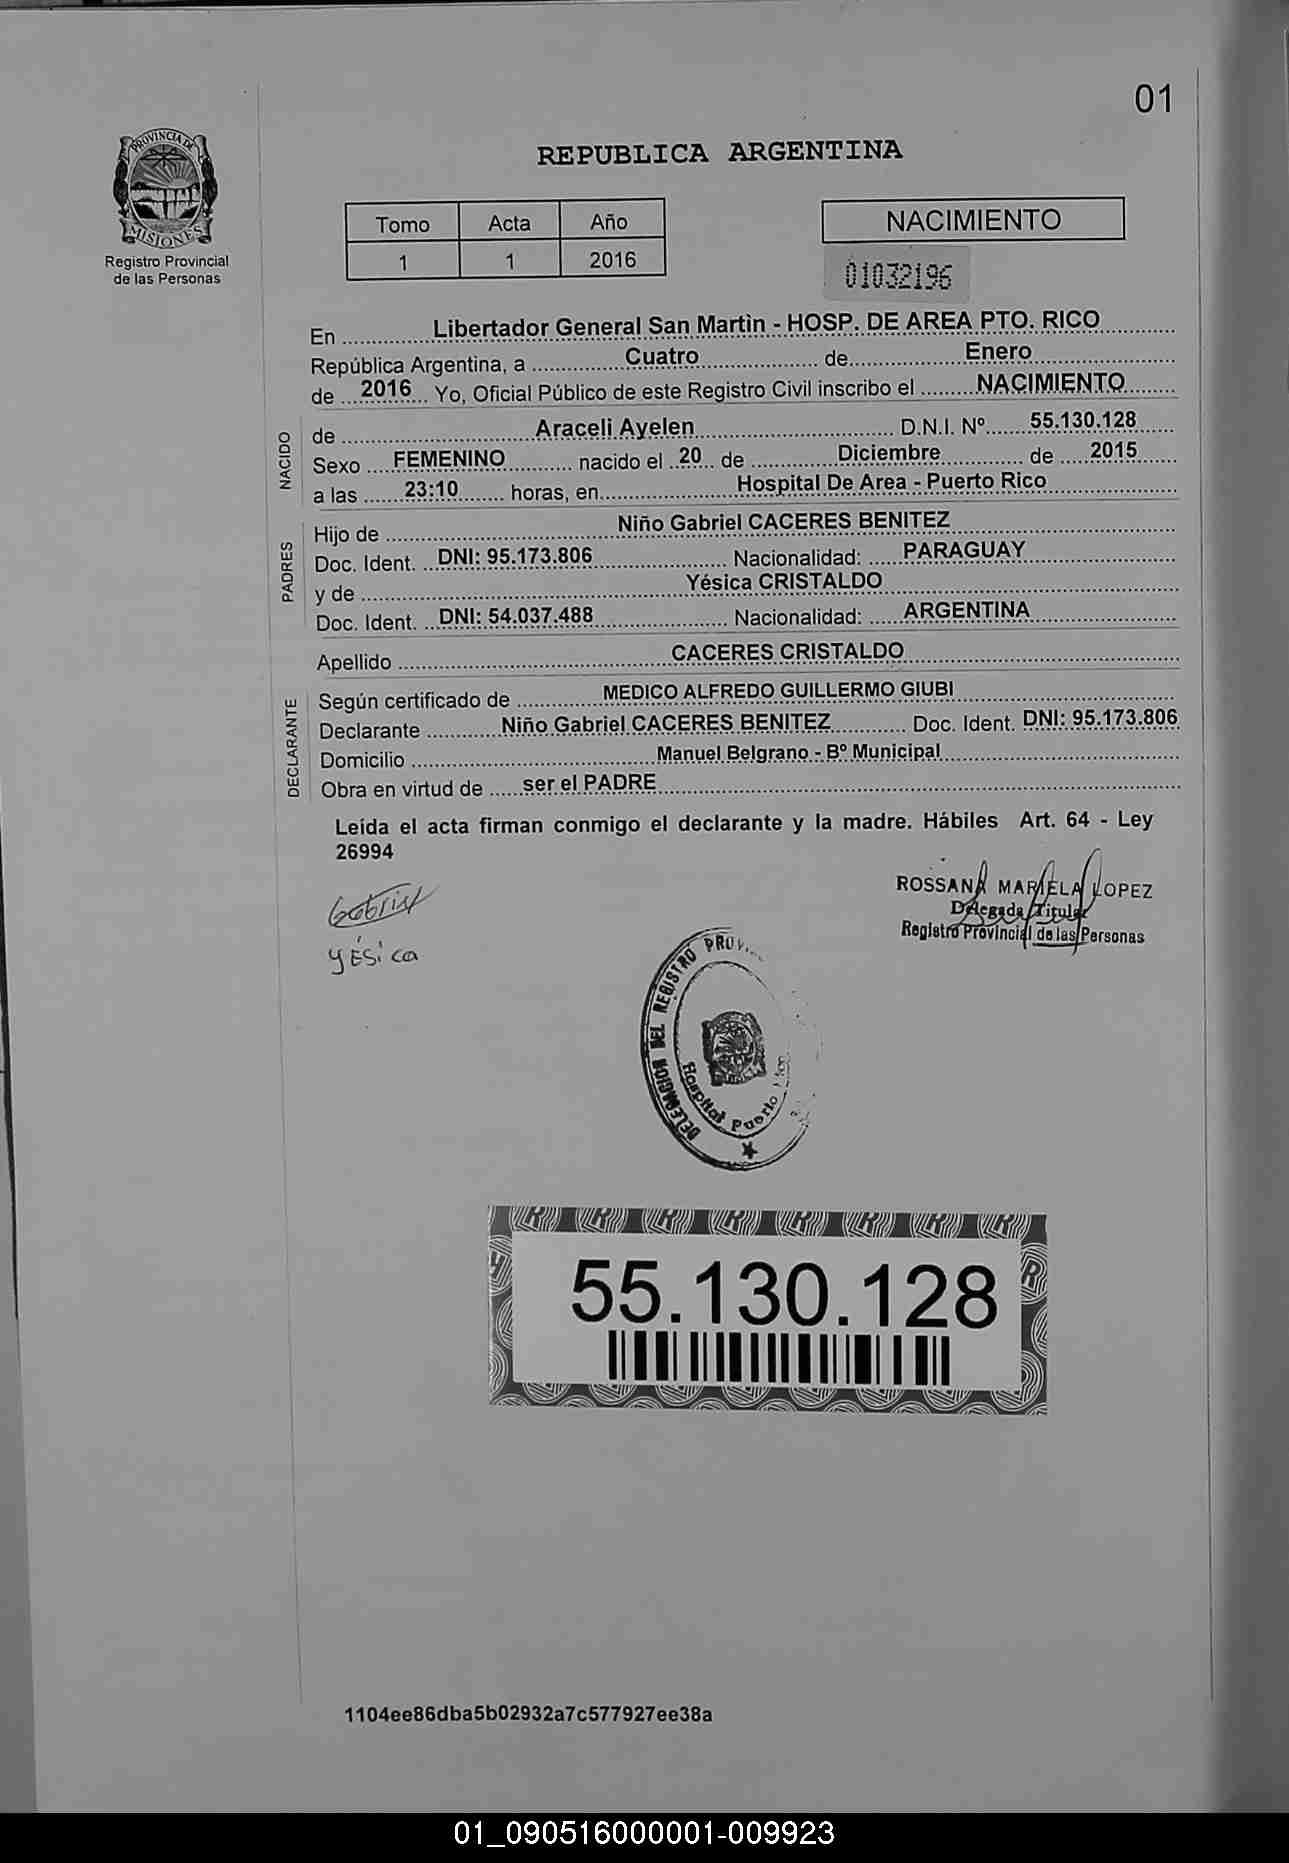 01
PROVINCIA DE
MISIONES
Registro Provincial
de las Personas
REPUBLICA ARGENTINA
Tomo Acta Año
1 1 2016
NACIMIENTO
01032196
En Libertador General San Martìn - HOSP. DE AREA PTO. RICO
República Argentina, a Cuatro de Enero
de 2016 Yo, Oficial Público de este Registro Civil inscribo el NACIMIENTO
NACIDO
de Araceli Ayelen D.N.I. Nº 55.130.128
Sexo FEMENINO nacido el 20 de Diciembre de 2015
a las 23:10 horas, en Hospital De Area - Puerto Rico
PADRES
Hijo de Niño Gabriel CACERES BENITEZ
Doc. Ident. DNI: 95.173.806 Nacionalidad: PARAGUAY
y de Yésica CRISTALDO
Doc. Ident. DNI: 54.037.488 Nacionalidad: ARGENTINA
Apellido CACERES CRISTALDO
DECLARANTE
Según certificado de MEDICO ALFREDO GUILLERMO GIUBI
Declarante Niño Gabriel CACERES BENITEZ Doc. Ident. DNI: 95.173.806
Domicilio Manuel Belgrano - Bº Municipal
Obra en virtud de ser el PADRE
Leída el acta firman conmigo el declarante y la madre. Hábiles Art. 64 - Ley
26994
Gabriel
YÉSica
ROSSANA MARIELA LOPEZ
Delegada Titular
Registro Provincial de las Personas
DELEGACION DEL REGISTRO
Hospital Puerto
55.130.128
1104ee86dba5b02932a7c577927ee38a
01_090516000001-009923